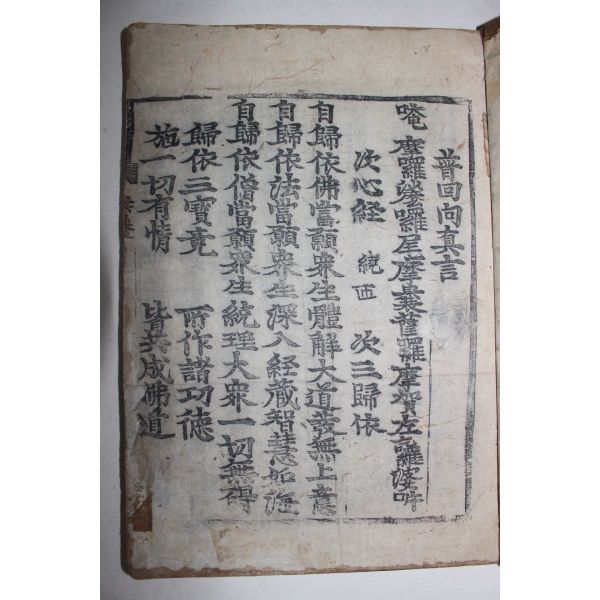 普回向真言
唵 摩囉娑囉尾摩曩囉摩賀左囉婆吽
次心経 繞匝 次三歸依
自歸依佛當願衆生體解大道發無上意
自歸依法當願衆生深入経蔵智慧如海
自歸依僧當願衆生統理大衆一切無得
歸依三寶竟 所作諸功徳
施一切有情 皆共成佛道